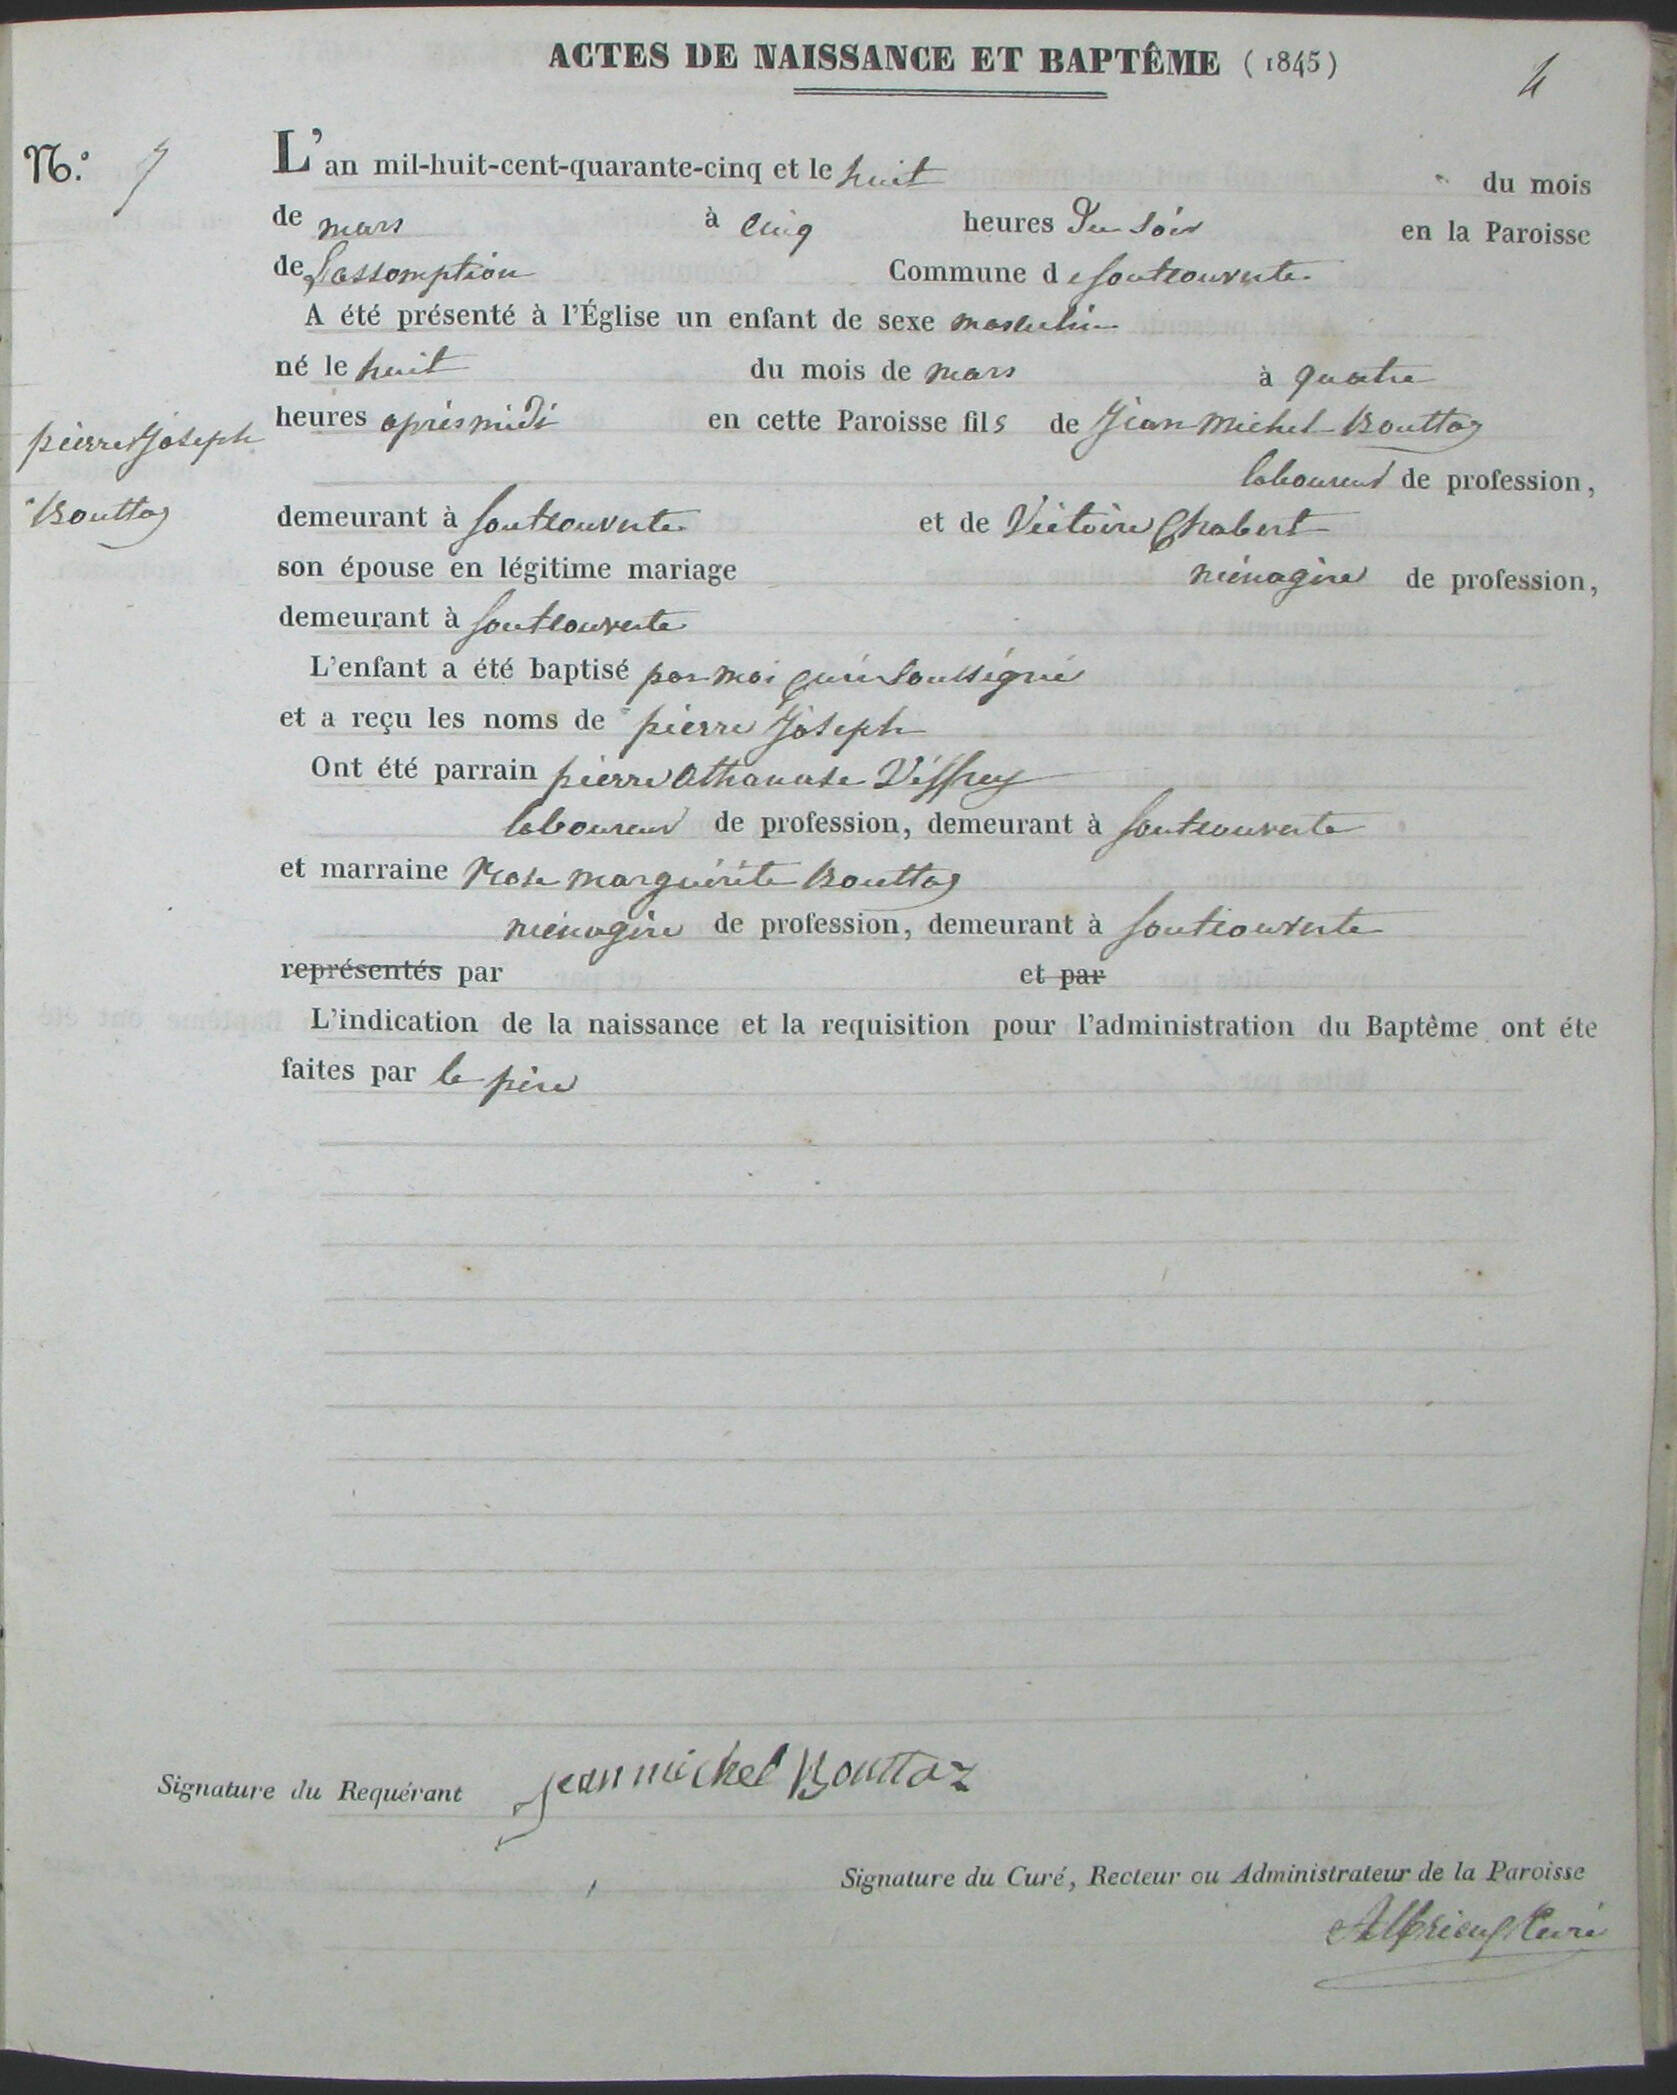 ACTES DE NAISSANCE ET BAPTÊME (1845)
4
N.º 7
L'an mil-huit-cent-quarante-cinq et le huit du mois
de mars à cinq heures du soir en la Paroisse
de Lassomption Commune de fontcouverte
A été présenté à l'Église un enfant de sexe masculin
né le huit du mois de mars à quatre
heures après midi en cette Paroisse fils de Jean Michel Bouttaz
laboureur de profession,
pierre Joseph
Bouttaz
demeurant à fontcouverte et de Victoire Chabert
son épouse en légitime mariage ménagère de profession,
demeurant à fontcouverte
L'enfant a été baptisé par moi curé soussigné
et a reçu les noms de pierre Joseph
Ont été parrain pierre Athanase
laboureur de profession, demeurant à fontcouverte
et marraine Rose marguérite Bouttaz
ménagère de profession, demeurant à fontcouverte
représentés par et par
L'indication de la naissance et la requisition pour l'administration du Baptême ont éte
faites par le père
Signature du Requérant jean michel Bouttaz
Signature du Curé, Recteur ou Administrateur de la Paroisse
Curé